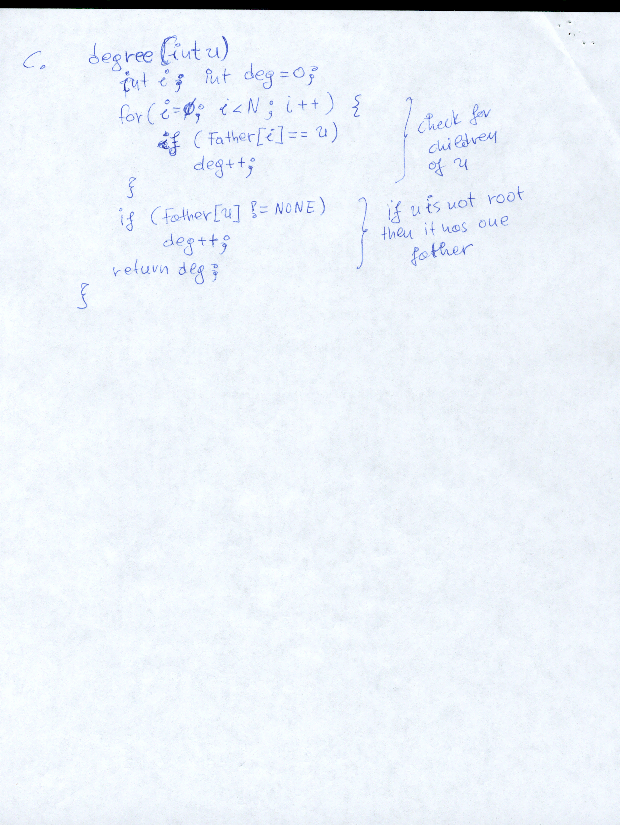 C. degree(int u)
int i; int deg=0;
for(i=0; i<N; i++) {
if (Father[i]==u)
deg++;
}
check for
children
of u
if (Father[u] != NONE)
deg++;
if u is not root
then it has one
father
return deg;
}